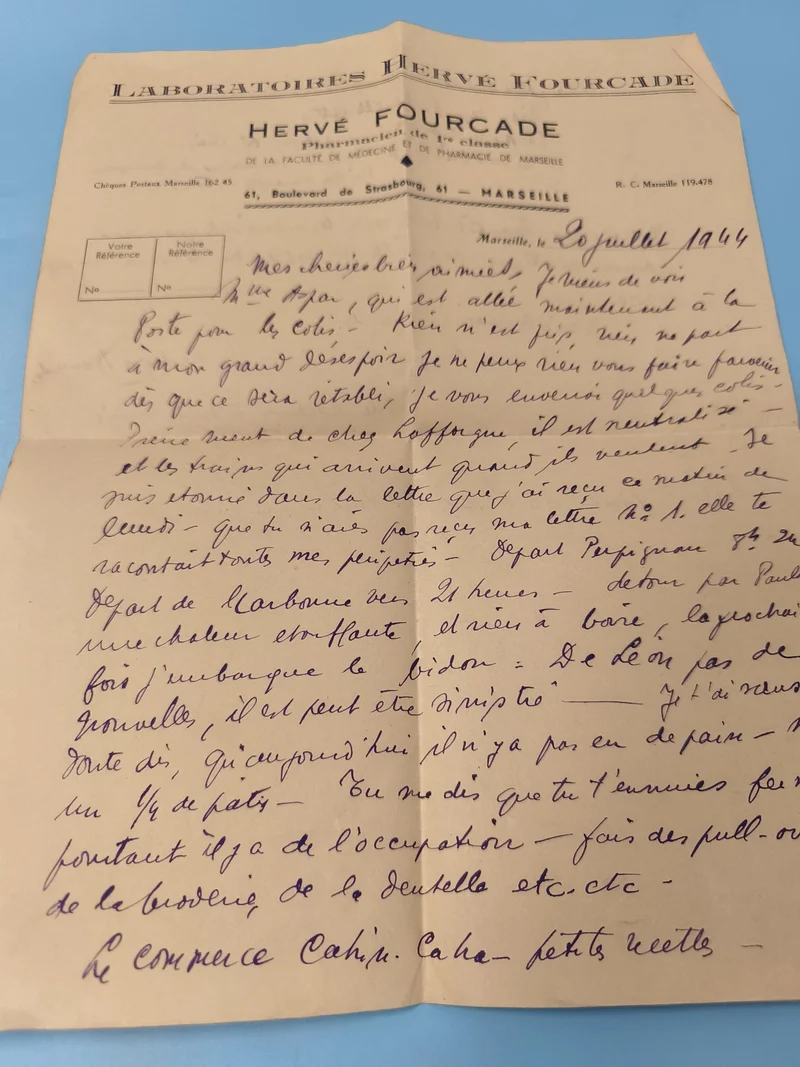 LABORATOIRES HERVÉ FOURCADE
HERVÉ FOURCADE
Pharmacien de 1re classe
DE LA FACULTÉ DE MÉDECINE ET DE PHARMACIE DE MARSEILLE
Chèques Postaux Marseille 162 45
61, Boulevard de Strasbourg, 61 — MARSEILLE
R. C. Marseille 119.478
Votre Référence
No
Notre Référence
No
Marseille, le 20 juillet 1944
Mes cheries bien aimées, Je viens de voir
Mme Aspar, qui est allée maintenant à la
Poste pour les colis - Rien n'est pris, rien ne part
à mon grand désespoir je ne peux rien vous faire parvenir
dès que ce sera rétabli, je vous enverrai quelques colis -
ment de chez Lafforgue, il est neutralisé -
et les trains qui arrivent quand ils veulent - Je
suis etonné dans la lettre que j'ai reçu ce matin de
lundi - que tu n'aies pas reçu ma lettre No 1. elle te
racontait toutes mes péripéties - Départ Perpignan 8h 2
Départ de Narbonne vers 21 heures - detour par
une chaleur etouffante, et rien à boire, la prochai
fois j'embarque le bidon = De Léon pas de
nouvelles, il est peut être sinistré — Je t'ai sans
doute dis, qu'aujourd'hui il n'y a pas eu de pain -
un 1/4 de pâtes - Tu me dis que tu t'ennuies
pourtant il y a de l'occupation - fais des pull-ov
de la broderie, de la dentelle etc. etc -
Le commerce Cahin. Caha - petites recettes -